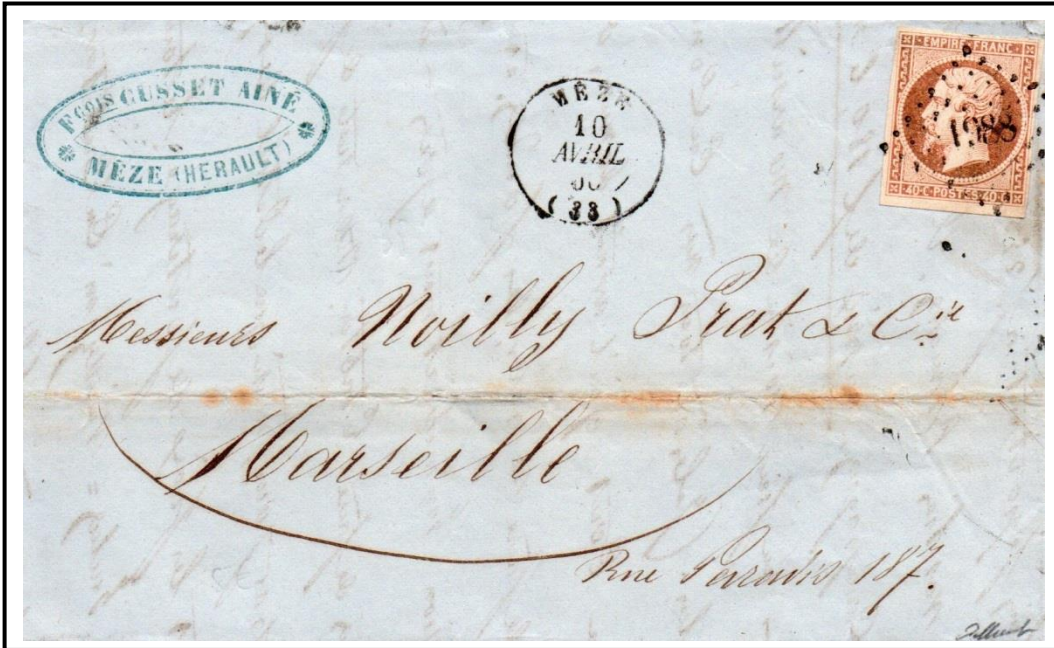 Fçois CUSSET AINÉ
MÈZE (HERAULT)
MÈZE
10
AVRIL
60
(33)
EMPIRE FRANC
1988
40·C·POSTES·40·C
Messieurs Noilly Prat & Cie
Marseille
Rue Paradis 187.